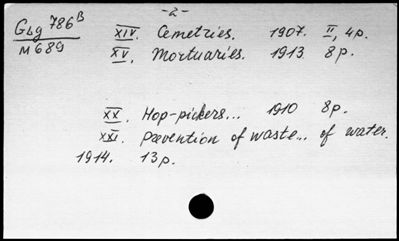 -2-
Gbg 786B
M 689
XIV. Cemetries. 1907. II, 4p.
XV. Mortuaries. 1913. 8p.
XX. Hop-pickers... 1910 8p.
XXI. Prevention of waste... of water.
1914. 13p.